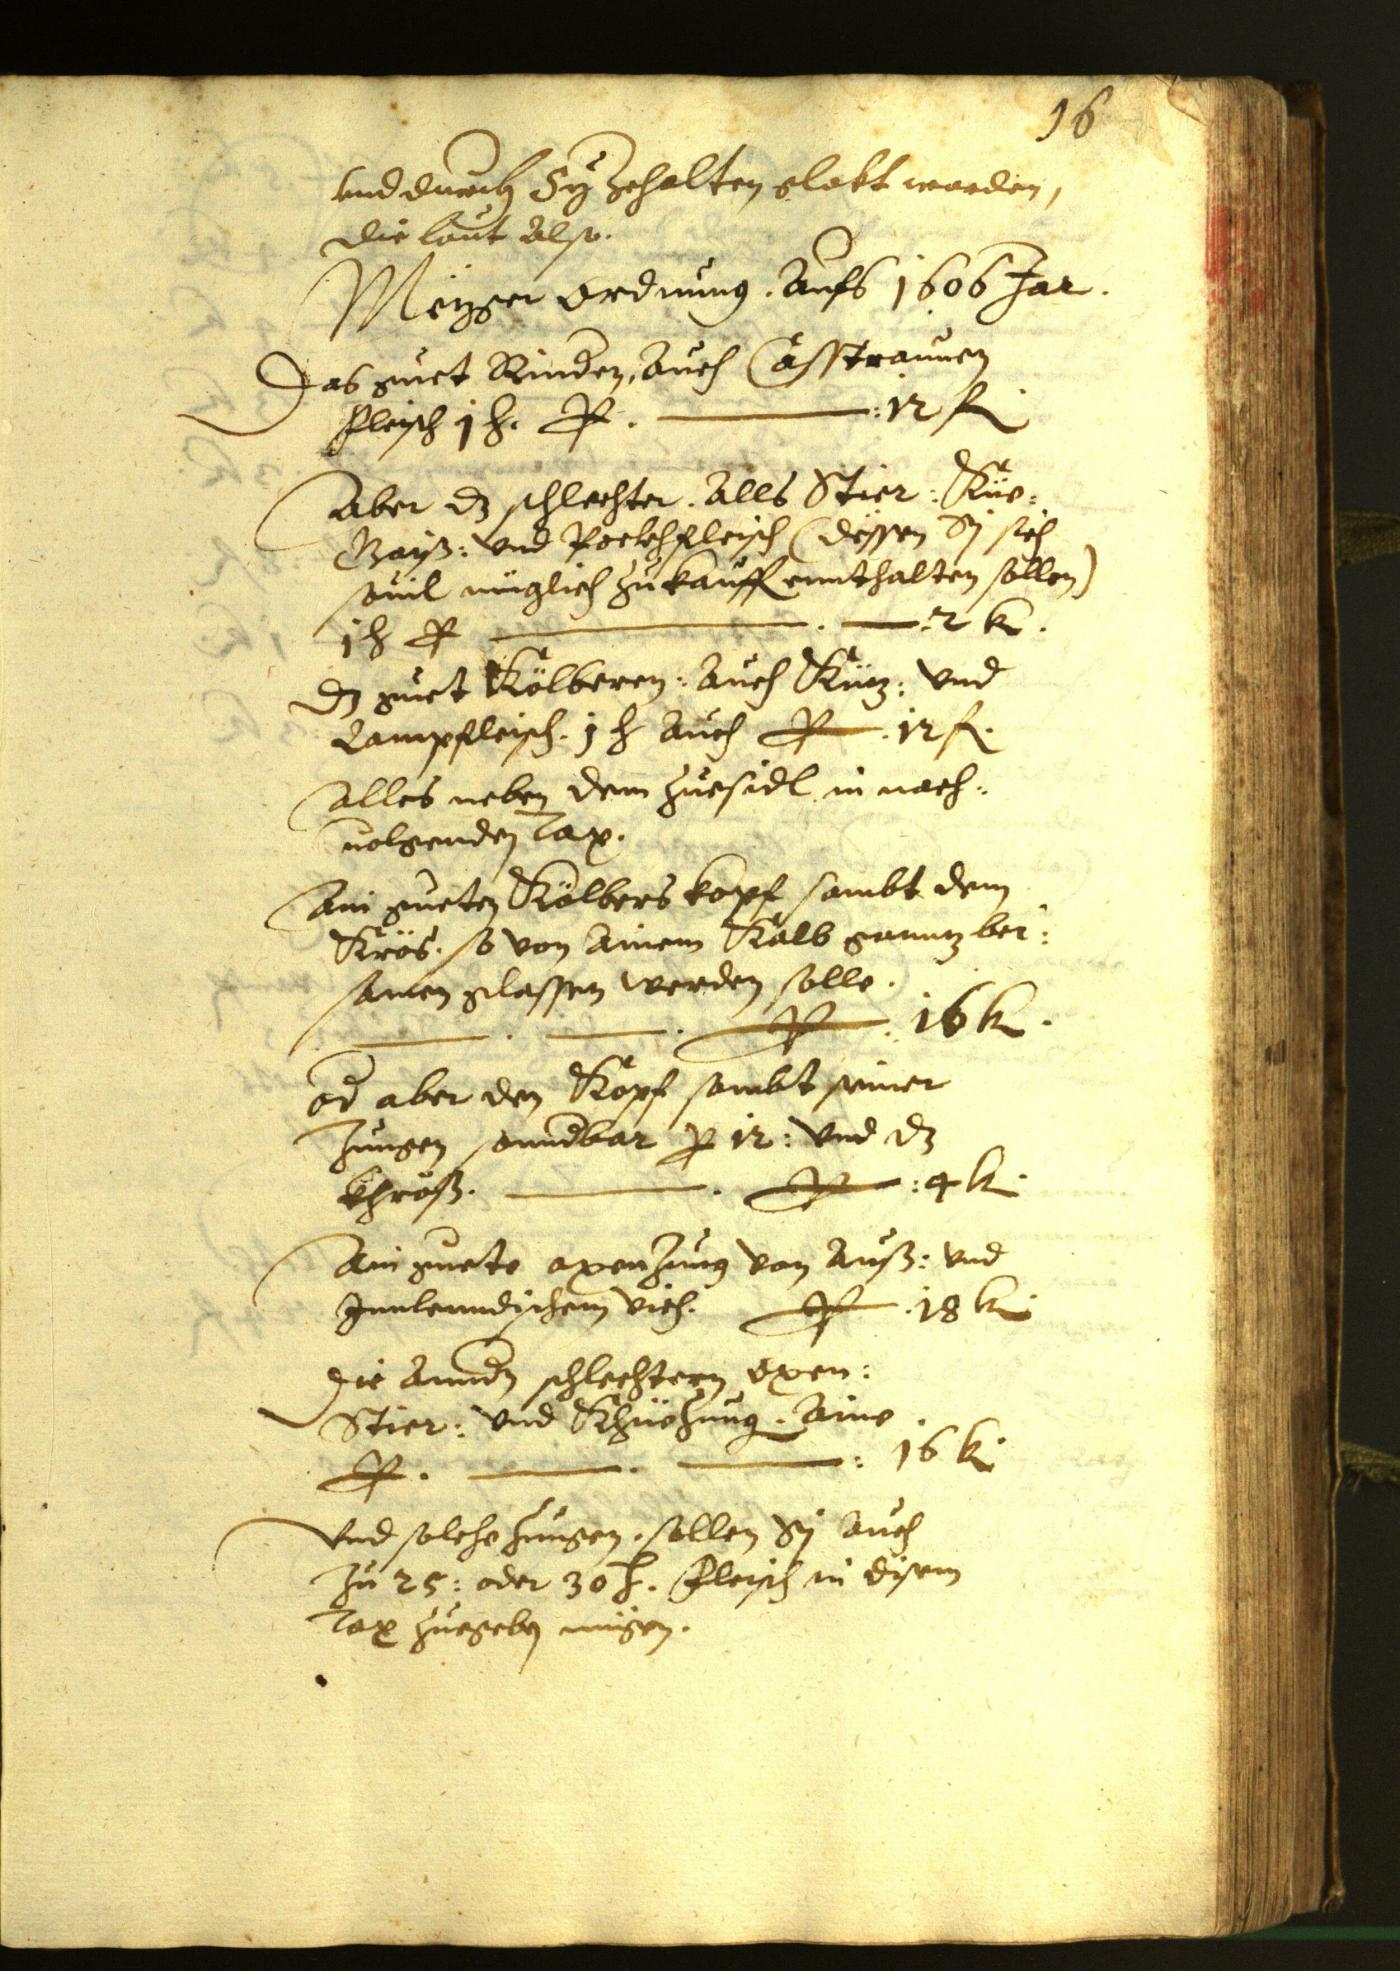 16
vnd durch Sy zehalten globt worden,
die laut also.
Metzger Ordnung. Aufs 1606 Jar.
Das guet Rinden, Auch Casstraunen
fleisch 1 ℔. Per. 12 f.
Aber dz schlechter. Alls Stier: Küe:
Gaiß: vnd Pockhfleisch (dessen Sy sich
souil müglich zukauffen enthalten sollen)
1 ℔ Per 2 k.
Dz guet Kölberen: Auch Kütz: vnd
Lampfleisch. 1 ℔ Auch Per 12 f.
Alles neben dem Zuesidl in nach:
uolgenden Tax.
Ain gueten Kölbers kopf sambt dem
Krös. so von Ainem Kalb ganntz bei:
samen glassen werden solle.
Per 16 k.
Od aber den Kopf sambt seiner
Zungen sonndbar p 12: vnd dz
khröß. Per 4 k.
Ain guete oxenzung von Auß: vnd
Innlenndischem vich. Per 18 k.
Die Anndn schlechtern Oxen:
Stier: vnd Khüezung. Aine
Per. 16 k.
Vnd solche Zungen. sollen Sy Auch
Zu 25: oder 30 ℔. fleisch in disem
Tax Zuegeben mügen.